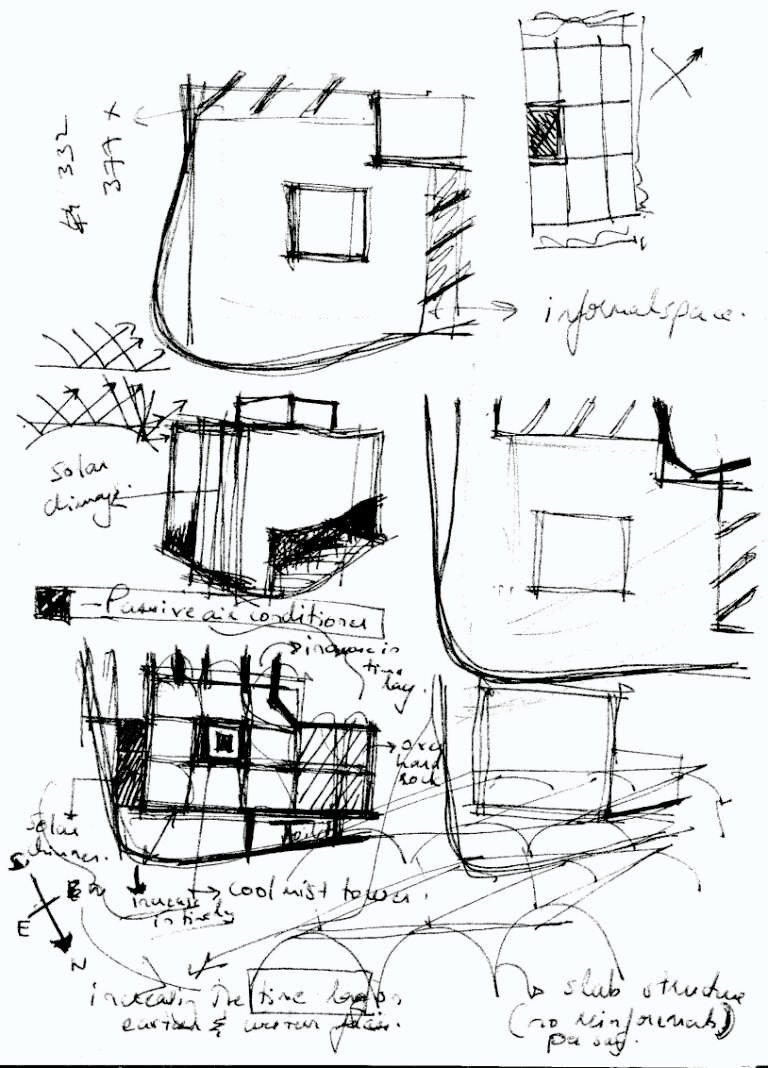 332
377 x
informal space.
solar
chimney.
- Passive air conditioner
increase in
time
lag.
over
hard
rock
solar
chimney.
toilet
S
E
N
increase
in
→ cool mist tower.
increasing the time lag on
eastern & western faces.
slab structure
(no reinforcements)